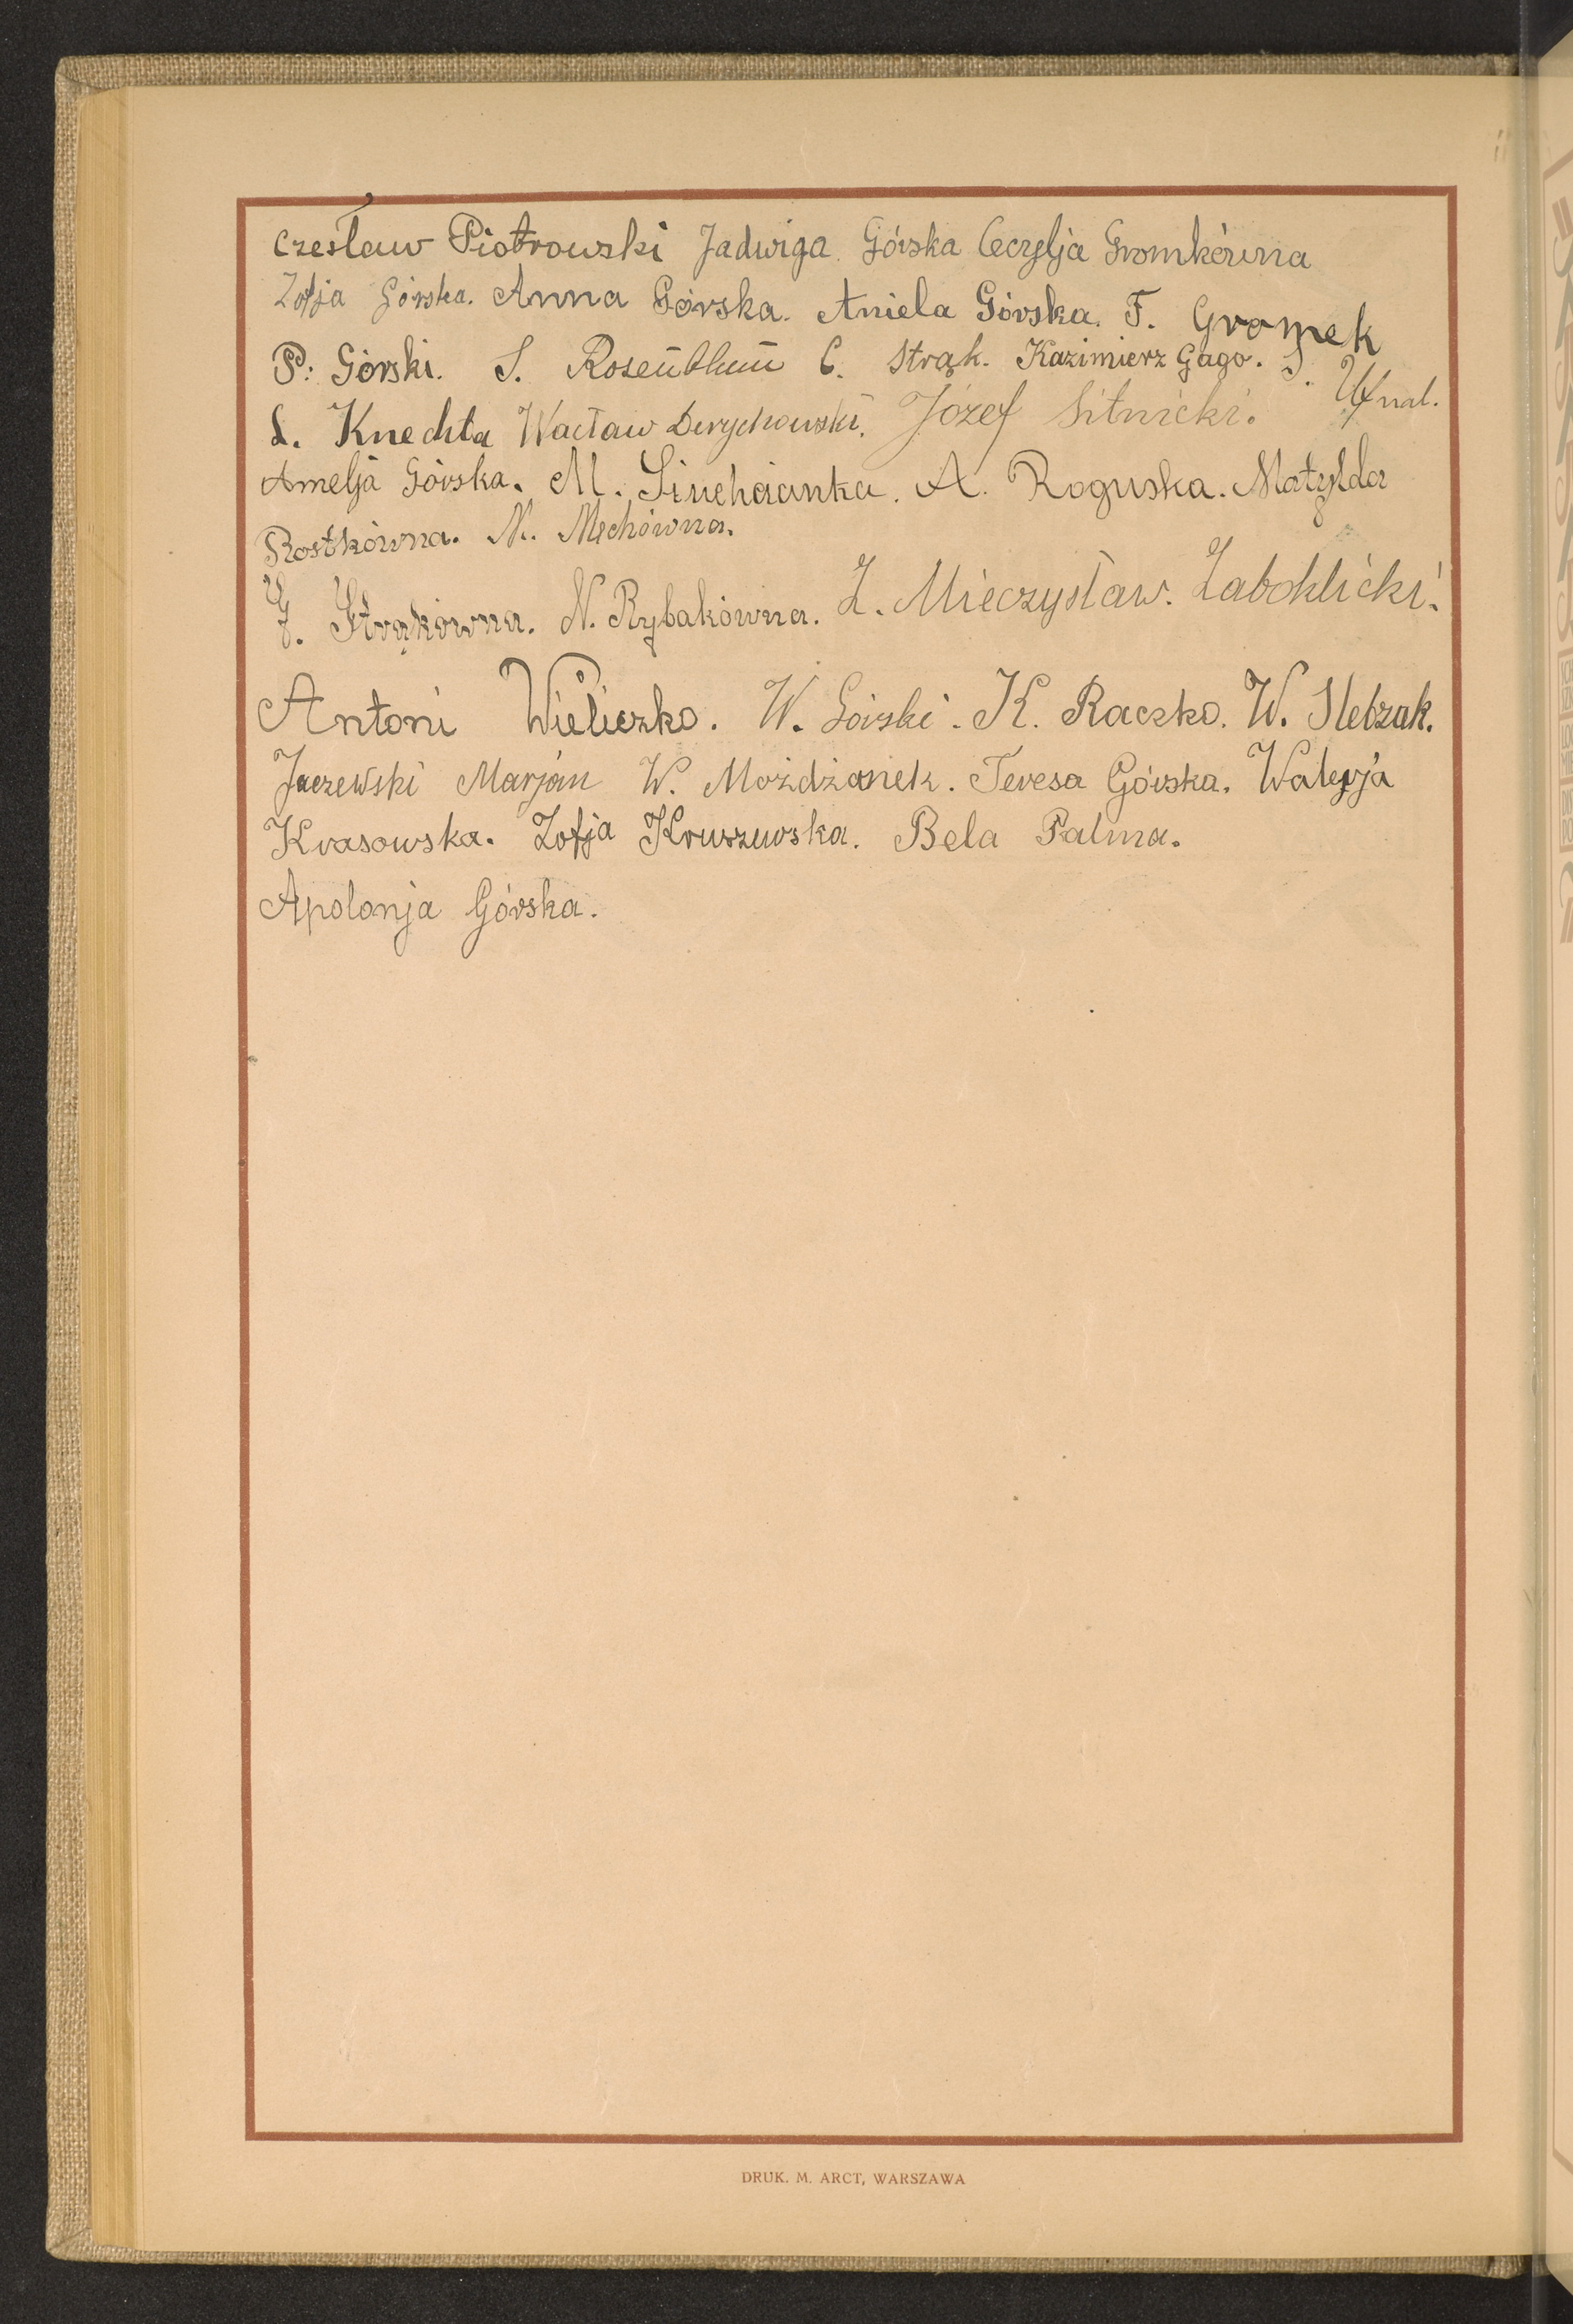 Czesław Piotrowski Jadwiga Górska Cecylja Gromkówna
Zofja Górska. Anna Górska. Aniela Górska. F. Gromek
P. Górski. S. Rosenblum C. Strąk. Kazimierz Gago. S. Ufnal.
L. Knechta Wacław Józef Sitnicki.
Amelja Górska. M. A. Roguska. Matylda
Rostkówna. M. Mechówna.
J. Strąkówna. N. Rybakówna. Z. Mieczysław. Zaboklicki.
Antoni Wieliczko. W. Górski. K. Raczko. W. Slebzak.
Jaczewski Marjan W. Możdżonek. Teresa Górska. Walerja
Krasowska. Zofja Kruszewska. Bela Palma.
Apolonja Górska.
DRUK. M. ARCT, WARSZAWA